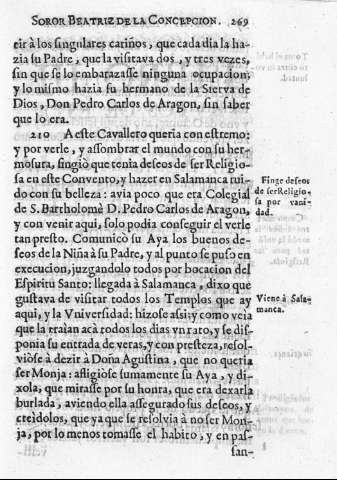 SOROR BEATRIZ DE LA CONCEPCION. 269
tir à los singulares cariños, que cada dia la ha-
zia su Padre, que la visitava dos, y tres vezes,
sin que se lo embarazasse ninguna ocupacion;
y lo mismo hazia su hermano de la Sierva de
Dios, Don Pedro Carlos de Aragon, sin saber
que lo era.
210 A este Cavallero queria con estremo:
y por verle, y assombrar el mundo con su her-
mosura, fingiò que tenia deseos de ser Religio-
sa en este Convento, y hazer en Salamanca rui-
do con su belleza: avia poco que era Colegial
de S. Bartholomè D. Pedro Carlos de Aragon,
y con venir aqui, solo podia conseguir el verle
tan presto. Comunicò su Aya los buenos de-
seos de la Niña à su Padre, y al punto se puso en
execucion, juzgandolo todos por bocacion del
Espiritu Santo: llegada à Salamanca, dixo que
gustava de visitar todos los Templos que ay
aqui, y la Vniversidad: hizose assi: y como veia
que la traian acà todos los dias vn rato, y se dis-
ponia su entrada de veras, y con presteza, resol-
viòse à dezir à Doña Agustina, que no queria
ser Monja: afligiòse sumamente su Aya, y di-
xola, que mirasse por su honra, que era dexarla
burlada, aviendo ella assegurado sus deseos, y
creidolos, que ya que se resolvia à no ser Mon-
ja, por lo menos tomasse el habito, y en pas-
san-
Finge deseos
de ser Religio-
sa por vani-
dad.
Viene à Sala-
manca.